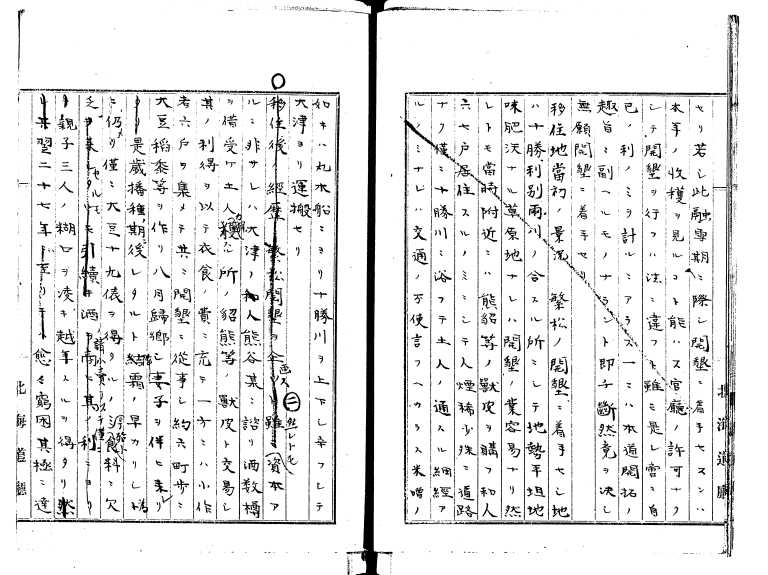 セリ若シ此融雪期ニ際シ開墾ニ着手セスンハ
本年ノ收穫ヲ見ルコト能ハス官廳ノ許可ナク
シテ開墾ヲ行フハ法ニ違フト雖ニ是レ啻ニ自
己ノ利ノミヲ計ルニアラス一ニハ本道開拓ノ
趣旨ニ副ヘルモノナラント即チ斷然意ヲ決シ
無願開墾ニ着手セリ
移住地當初ノ景況 繁松ノ開墾ニ着手セシ地
ハ十勝利別兩川ノ合スル所ニシテ地勢平坦地
味肥沃ナル草原地ナレハ開墾ノ業容易ナリ然
レトモ當時附近ニハ熊貂等ノ獸皮ヲ購フ和人
六七戸居住スルノミニシテ人煙稀少殊ニ道路
ナク僅ニ十勝川ニ沿フテ土人ノ通スル細徑ア
ルノミナレハ交通ノ不便言フヘカラス米噌ノ
北海道廳
如キハ丸木船ニヨリ十勝川ヲ上下シ辛フシテ
大津ヨリ運搬セリ
移住後ノ經歴 繁松開墾ヲ企ツト雖ニ資本ア
ルニ非サレハ大津ノ和人熊谷某ニ諮リ酒数樽
ヲ借受ケ土人ノ獲ル所ノ貂熊等ノ獸皮ト交易シ
其ノ利得ヲ以テ衣食ノ費ニ充テ一方ニハ小作
者六戸ヲ集メテ共ニ開墾ニ從事シ約六町歩ニ
大豆稻黍等ヲ作リ八月歸鄕シ妻子ヲ伴ヒ来レ
リ是歲播種ノ期後レタルト結霜ノ早カリシ為
ニ仍リ僅ニ大豆十九俵ヲ得タルノミ食料ニ欠
乏ヲ来シタルモ引續キ酒ヲ商ヒ其ノ利ニヨリ
テ親子三人ノ糊口ヲ凌キ越年スルヲ得タリ然
レ共翌二十七年ニ至リテハ愈々窮困其極ニ達
北海道廳